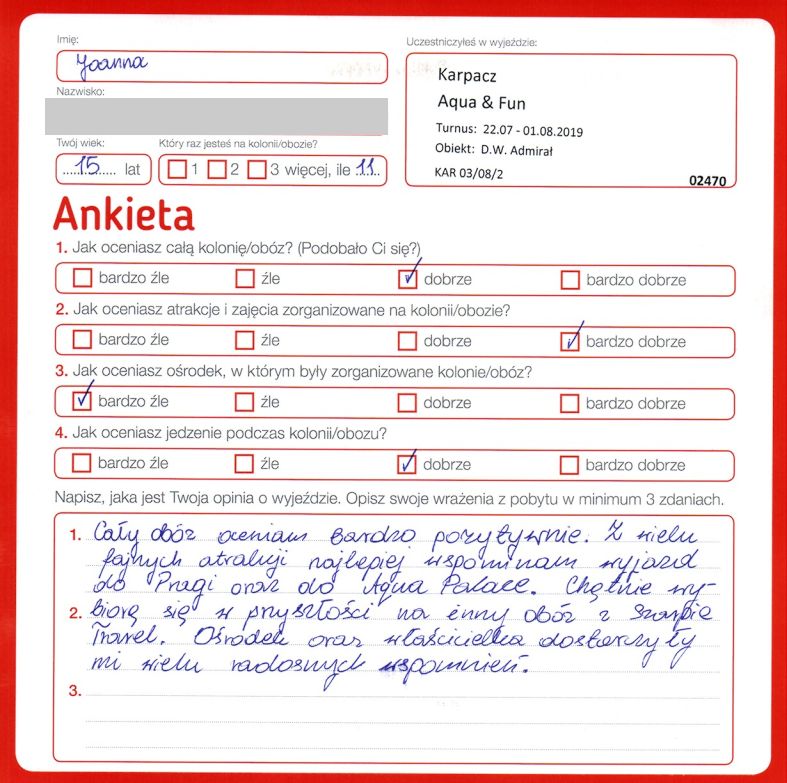 Imię:
Joanna
Uczestniczyłeś w wyjeździe:
Karpacz
Aqua & Fun
Turnus: 22.07 - 01.08.2019
Obiekt: D.W. Admirał
KAR 03/08/2
02470
Nazwisko:
Twój wiek:
15 lat
Który raz jesteś na kolonii/obozie?
1 2 3 więcej, ile 11
Ankieta
1. Jak oceniasz całą kolonię/obóz? (Podobało Ci się?)
bardzo źle źle dobrze bardzo dobrze
2. Jak oceniasz atrakcje i zajęcia zorganizowane na kolonii/obozie?
bardzo źle źle dobrze bardzo dobrze
3. Jak oceniasz ośrodek, w którym były zorganizowane kolonie/obóz?
bardzo źle źle dobrze bardzo dobrze
4. Jak oceniasz jedzenie podczas kolonii/obozu?
bardzo źle źle dobrze bardzo dobrze
Napisz, jaka jest Twoja opinia o wyjeździe. Opisz swoje wrażenia z pobytu w minimum 3 zdaniach.
1. Cały obóz oceniam bardzo pozytywnie. Z wielu
fajnych atrakcji najlepiej wspominam wyjazd
do Pragi oraz do Aqua Palace. Chętnie wy-
2. biorę się w przyszłości na inny obóz z Szarpie
Travel. Ośrodek oraz właścicielka dostarczyły
mi wielu radosnych wspomnień.
3.